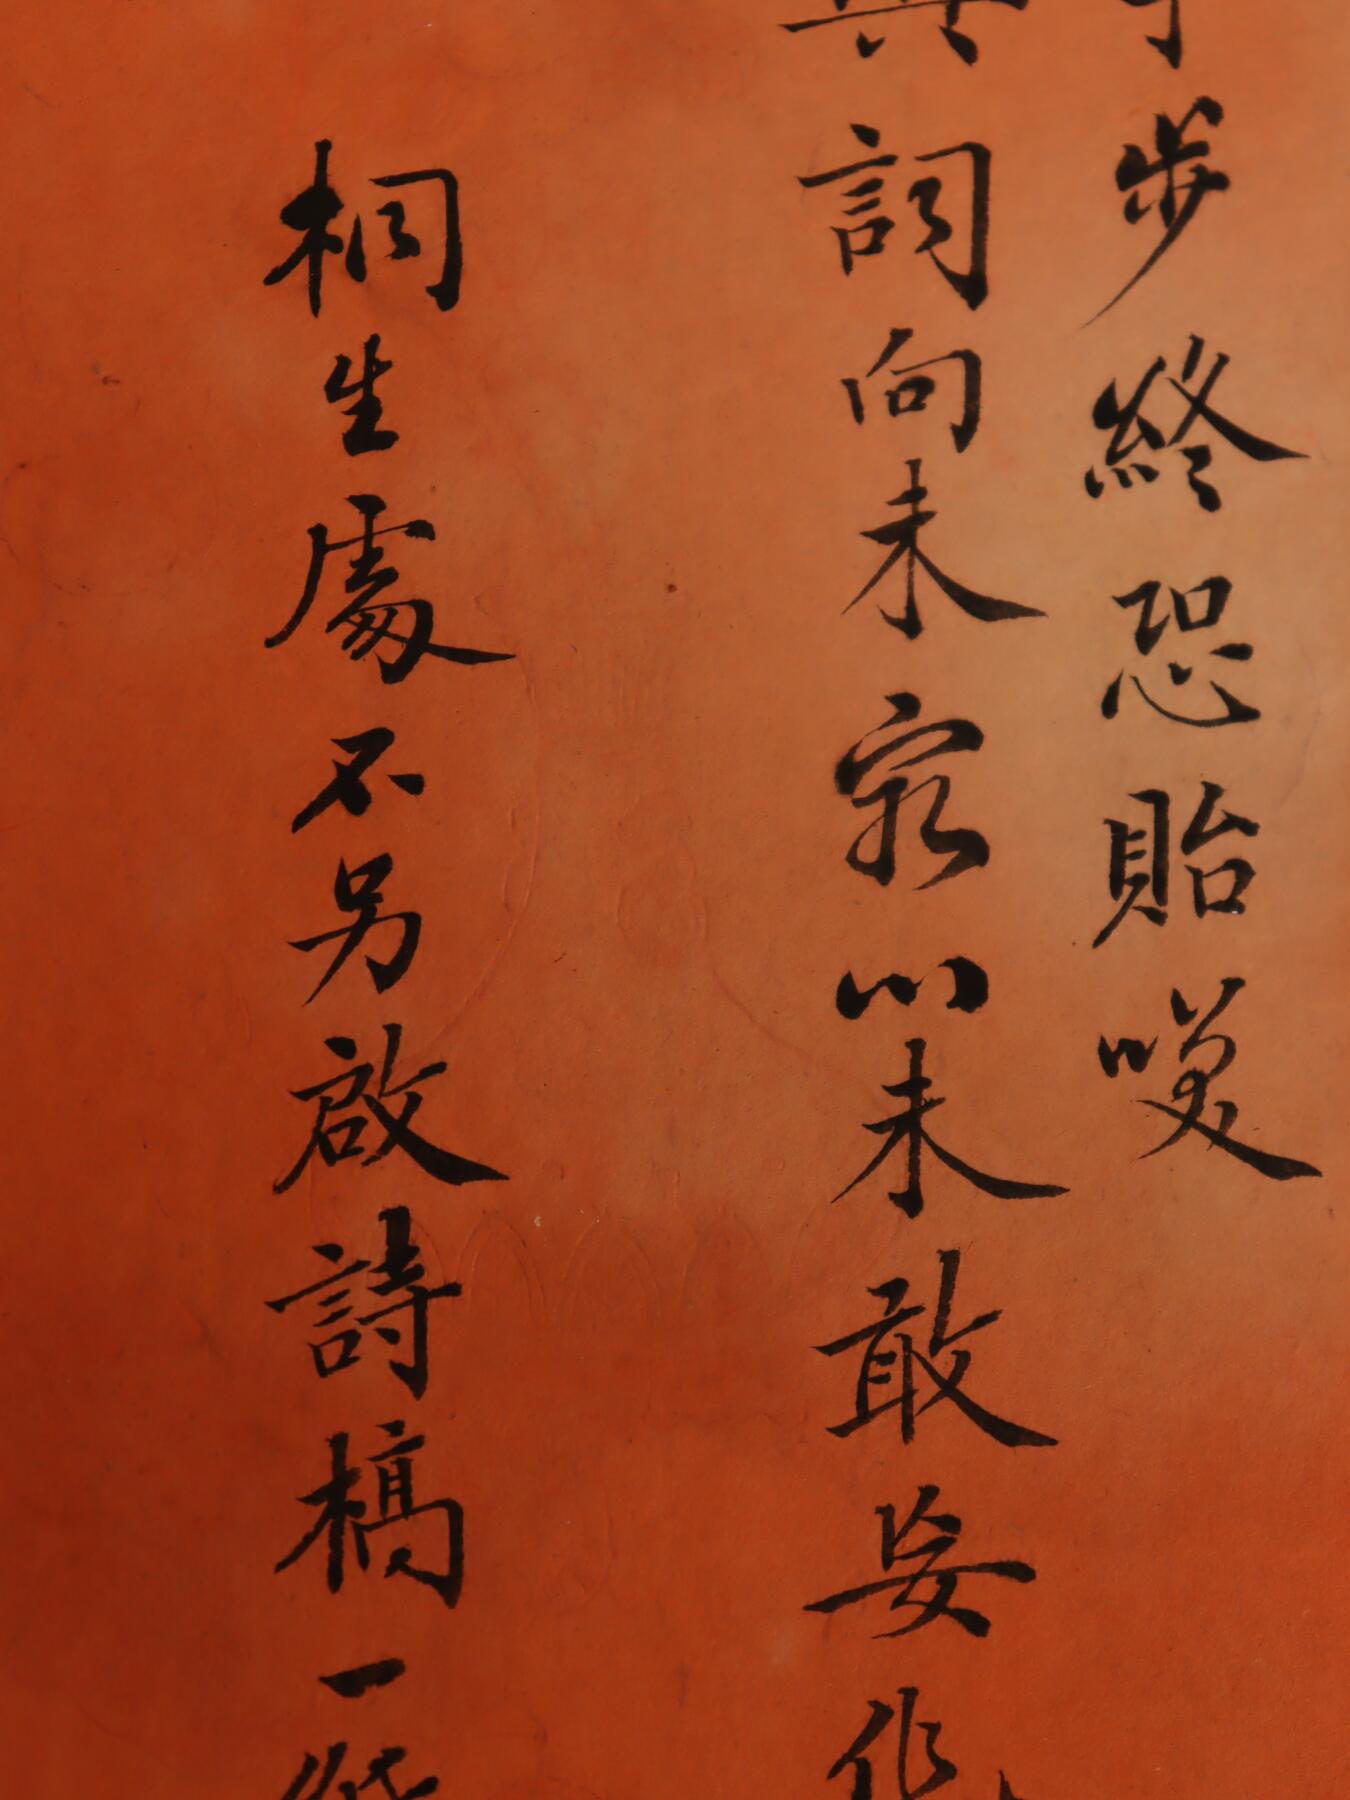 步終恐貽嘆
詞向未家以未敢妄作
桐生處不另啟詩稿一